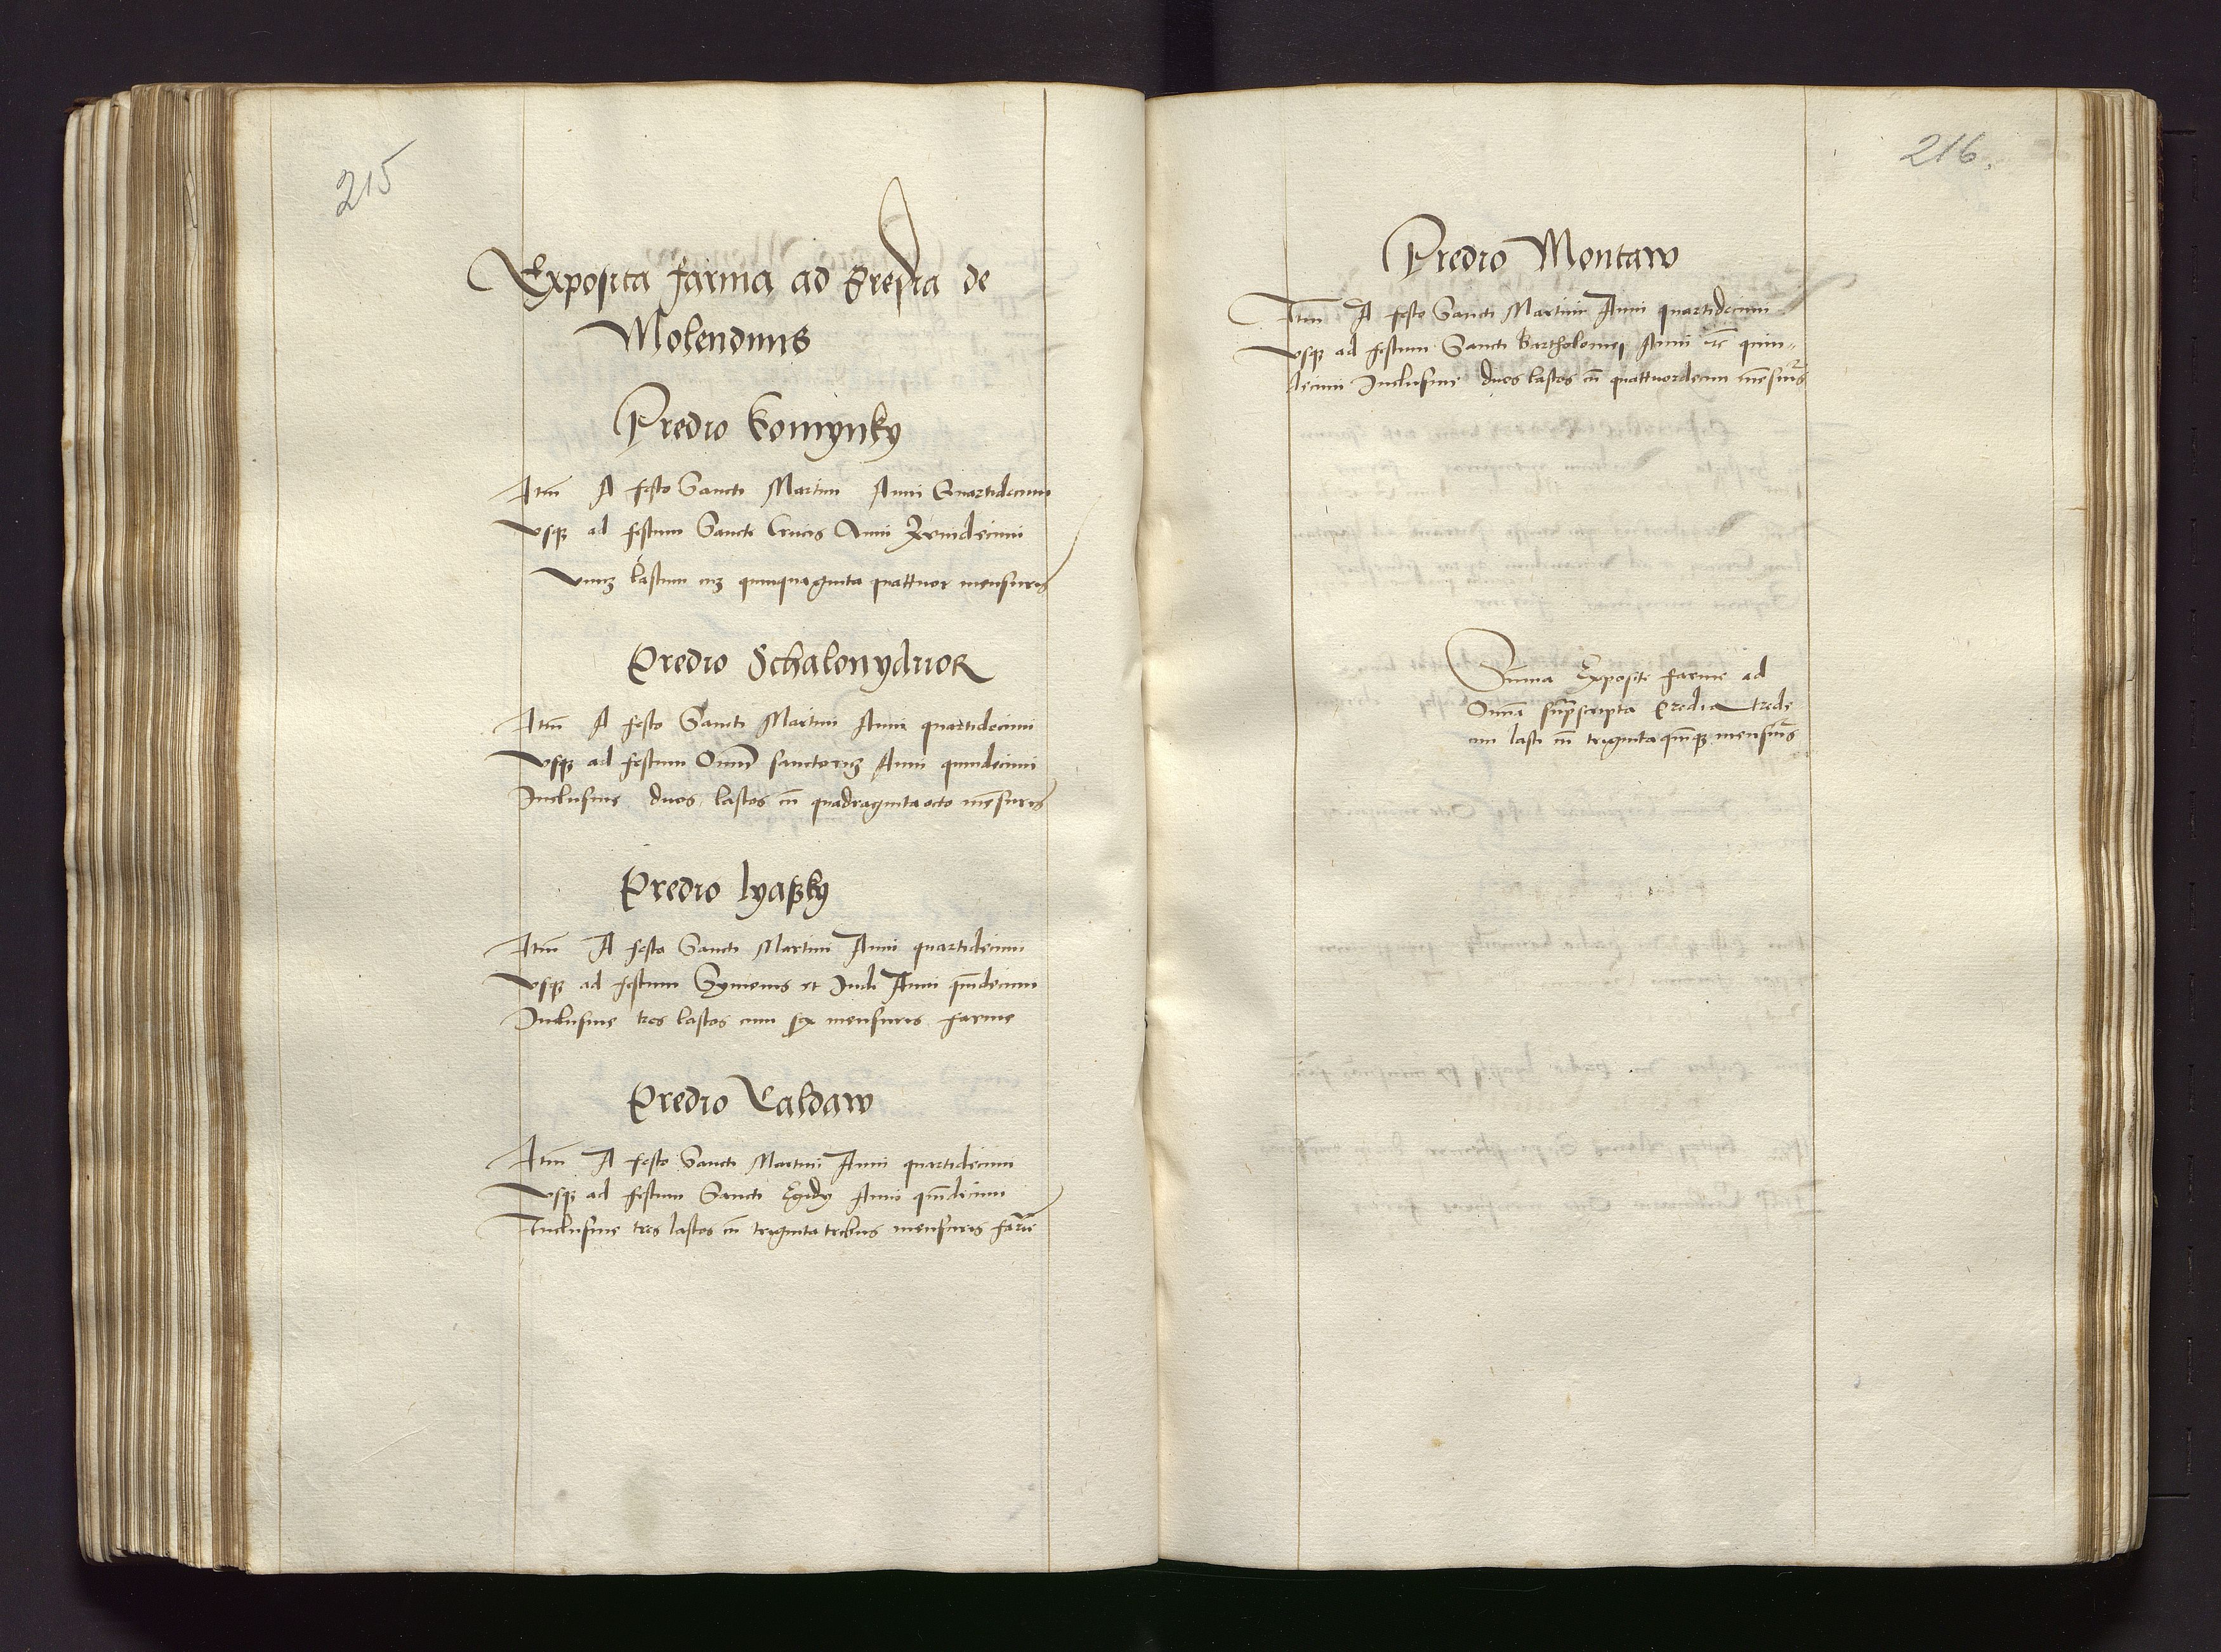 215
Exposita farina ad predia de
Molendinis
Predio Komynky
Itm A festo Sancti Martini Anni Quartidecimi
vsqz ad festum Sancte Crucis Anni Xvindecimi
vnuz Lastum cuz quinquaginta quattuor mensuris
Predio Schalonydwor
Itm A festo Sancti Martini Anni quartidecimi
vsqz ad festum Omni sanctoruz Anni quindecimi
Inclusiue duos lastos cu quadraginta octo mensuris
Predio lyaßky
Itm A festo Sancti Martini Anni quartidecimi
vsqz ad festum Symonis et Jude Anni quidecimi
Inclusiue tres lastos cum sex mensuris farine
Predio Caldaw
Itm A festo Sancti Martini Anni quartidecimi
vsqz ad festum Sancti Egidy Anni quidecimi
Inclusiue tres lastos cu triginta tribus mensuris farie
216.
Predio Montaw
Itm A festo Sancti Martini Anni quartidecimi
vsqz ad festum Sancti Bartholomei Anni etc quin-
decimi Inclusiue duos lastos cu quattuordecim mesuris
Suma Exposite farine ad
Omia suprascripta predia trede
cim lasti cu triginta quiqz mensuris